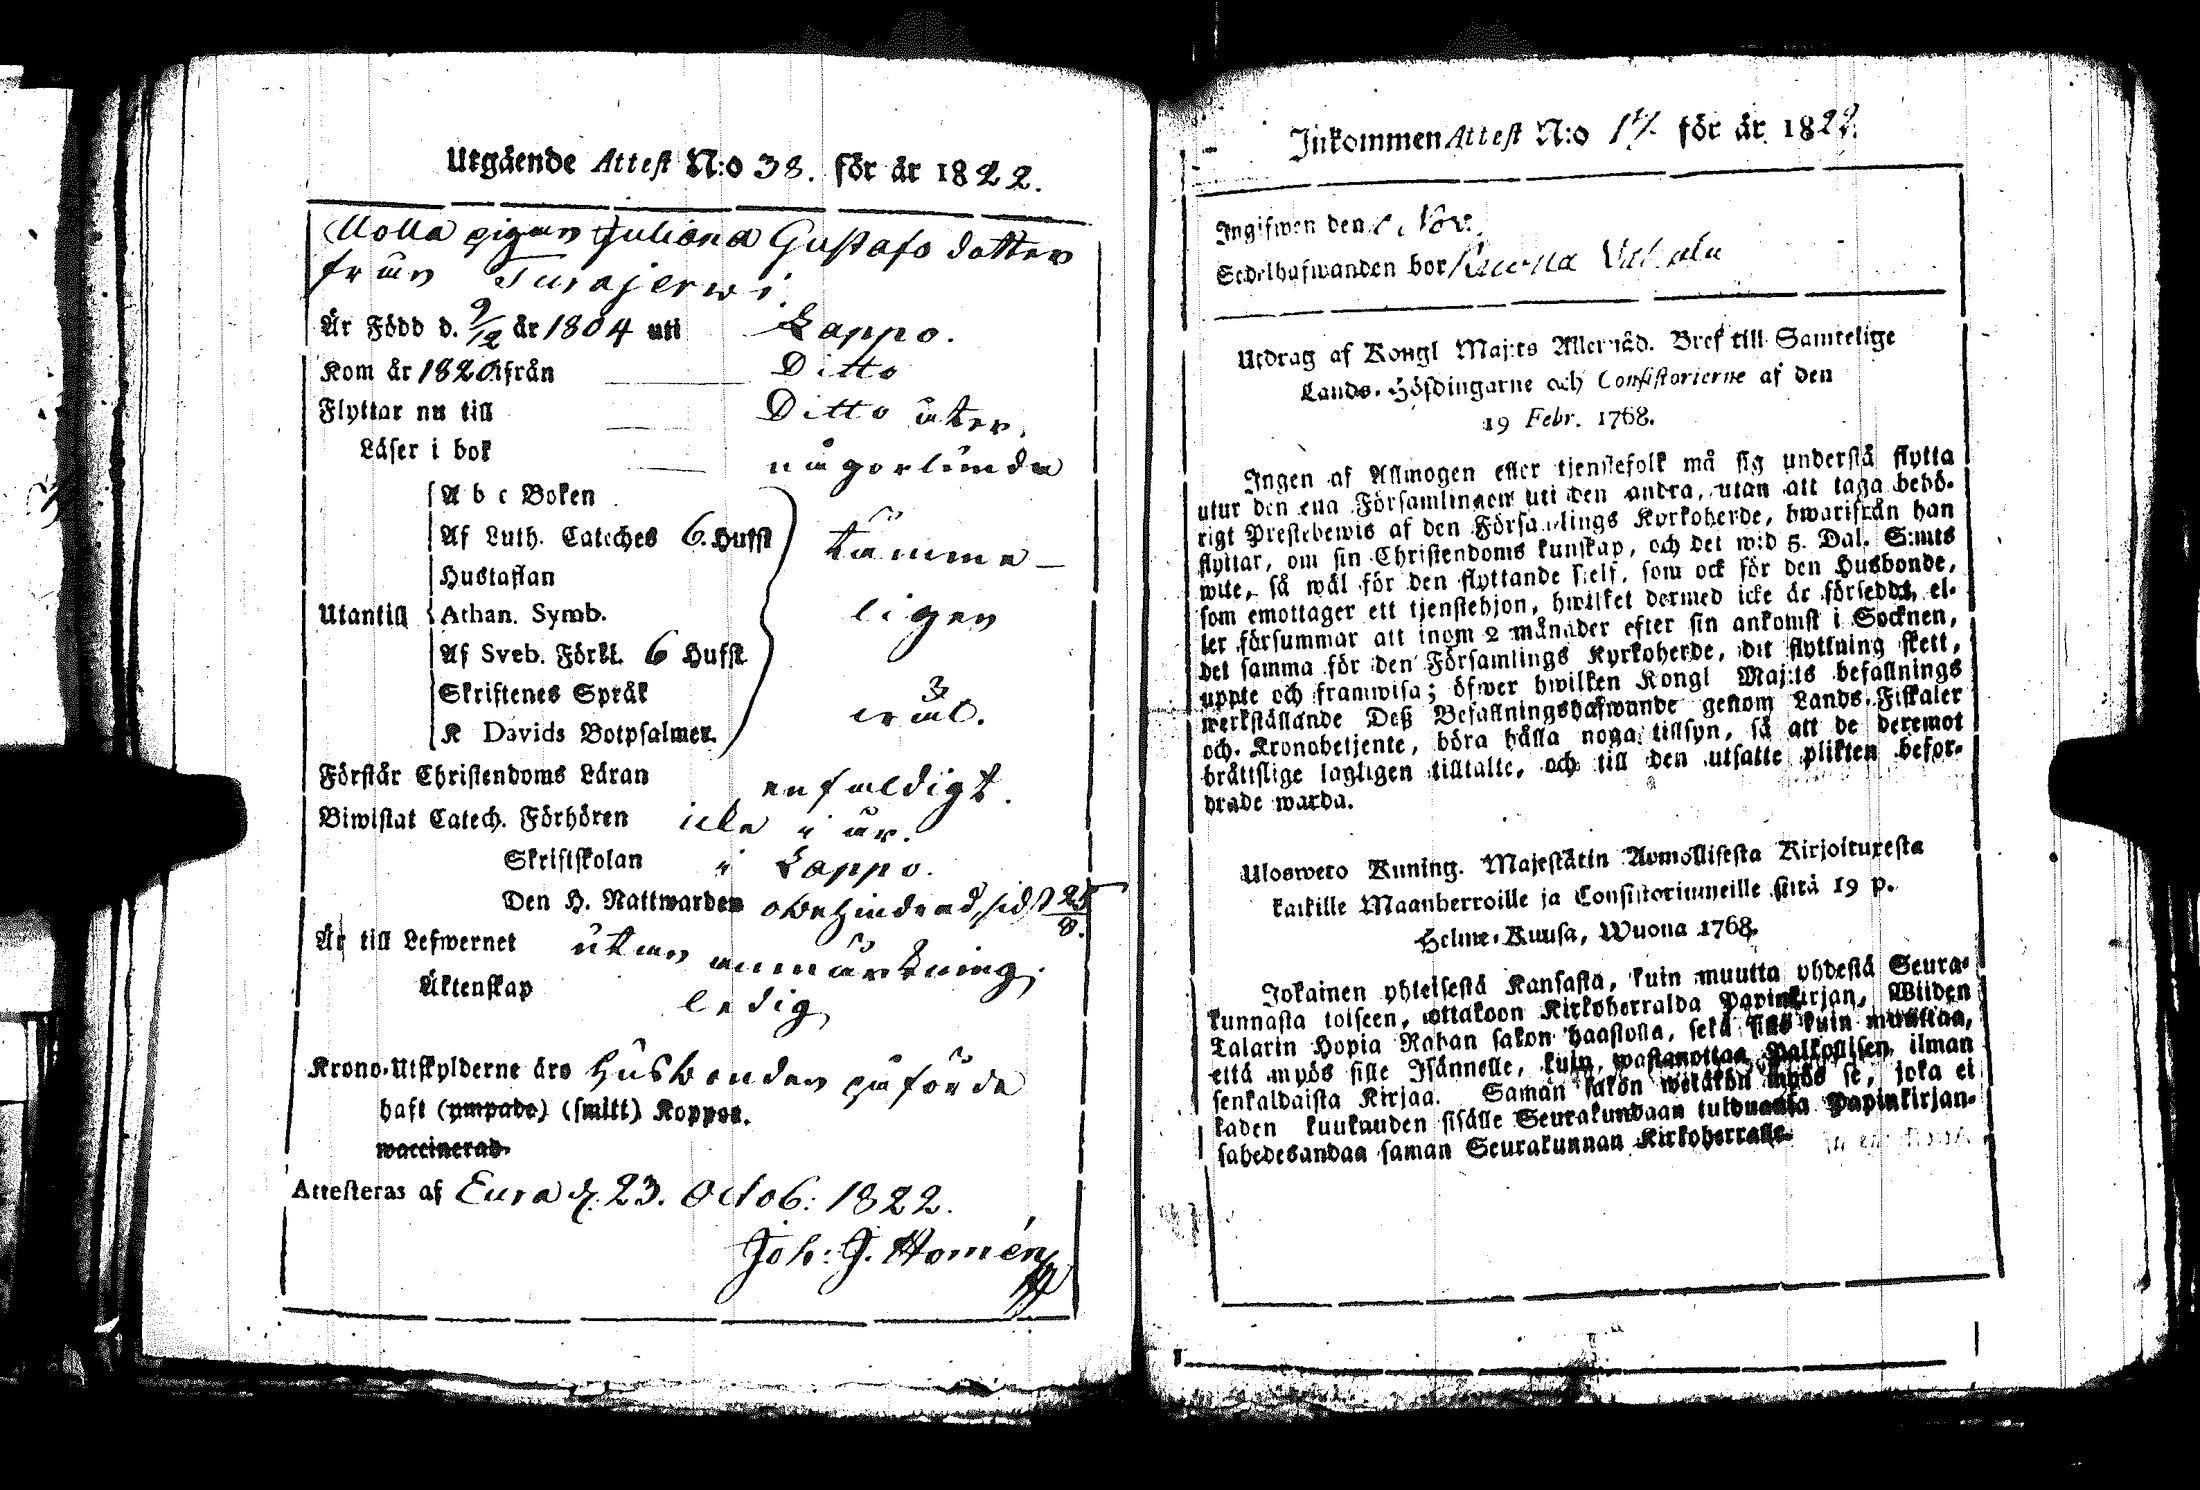 Utgående Attest N:o 38. för år 1822.
Molla pigan Juliana Gustafs dotter
från Turajerwi.
Är Född d. 9/12 år 1804 uti Lappo.
Kom år 1820 ifrån Ditto
Flyttar nu till Ditto åter.
Läser i bok någorlunda
A b c Boken
Af Luth. Cateches 6. Hufst tämme-
Hustaflan
Utantill Athan. Symb. ligen
Af Sveb. Förkl. 6 Hufst.
Skriftenes Språk
K Davids Botpsalmer.
Förstår Christendoms Läran enfaldigt.
Biwistat Catech. Förhören icke i år.
Skriftskolan i Lappo.
Den H. Nattwarden obehindrad, sidst 25/8.
Är till Lefwernet utan anmärkning.
Äktenskap ledig
Krono-Utskylderne äro Husbonden påförde
haft (ympade) (smitt) Koppor.
waccinerad.
Attesteras af Eura d. 23. Octob: 1822.
Joh: J. Homén
Inkommen Attest N:o 17. för år 1822.
Ingifwen den Nov.
Sedelhafwanden bor
Utdrag af Kongl Maj:ts Allernåd. Bref till Samtelige
Lands-Höfdingarne och Consistorierne af den
19 Febr. 1768.
Ingen af Allmogen eller tjenstefolk må sig understå flytta
utur den ena Församlingen uti den andra, utan att taga behö-
rigt Prestebewis af den Församlings Kyrkoherde, hwarifrån han
flyttar, om sin Christendoms kunskap, och det wid 5. Dal. S:mts
wite, så wäl för den flyttande sielf, som ock för den Husbonde,
som emottager ett tjenstehjon, hwilket dermed icke är försedd, el-
ler försummar att inom 2 månader efter sin ankomst i Socknen,
det samma för den Församlings Kyrkoherde, dit flyttning skett,
uppte och framwisa; öfwer hwilken Kongl Maj:ts befallnings
werkställande Deß Befallningshafwande genom Lands-Fiskaler
och Kronobetjente, böra hålla noga tillsyn, så att de deremot
bråttslige lagligen tilltalte, och till den utsatte plikten befor-
drade warda.
Ulosweto Kuning. Majestätin Armollisesta Kirjoituxesta
kaikille Maanherroille ja Consistoriumeille siitä 19 p.
Helme-Kuusa, Wuona 1768.
Jokainen yhteisestä Kansasta, kuin muutta yhdestä Seura-
kunnasta toiseen, ottakoon Kirkoherralda Papinkirjan, Wiiden
Talarin Hopia Rahan sakon haastolla, sekä sille kuin muuttaa,
että myös sille Isännelle, kuin wastanottaa Palkollisen ilman
senkaldaista Kirjaa. Saman sakon wetäkön myös se, joka ei
kaden kuukauden sisälle Seurakundaan tulduansa Papinkirjan-
sahedesandaa saman Seurakunnan Kirkoherralle.